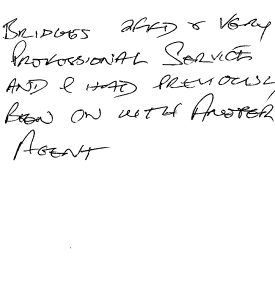 BRIDGES OFFERED A VERY
PROFESSIONAL SERVICE
AND I HAD PREVIOUSLY
BEEN ON WITH ANOTHER
AGENT